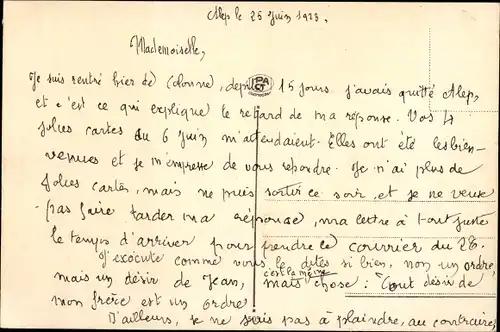 Alep le 25 Juin 1923.
Mademoiselle,
Je suis rentré hier de colonne, depuis 15 jours j'avais quitté Alep,
et c'est ce qui explique le retard de ma réponse. Vos 4
jolies cartes du 6 Juin m'attendaient. Elles ont été les bien-
venues et je m'empresse de vous répondre. Je n'ai plus de
jolies cartes, mais ne puis sortir ce soir, et je ne veux
pas faire tarder ma réponse, ma lettre a tout juste
le temps d'arriver pour prendre le courrier du 28.
J'exécute comme vous le dites si bien, non un ordre
mais un désir de Jean, c'est la même chose : Tout désir de
mon frère est un ordre.
D'ailleurs, je ne suis pas à plaindre, au contraire,